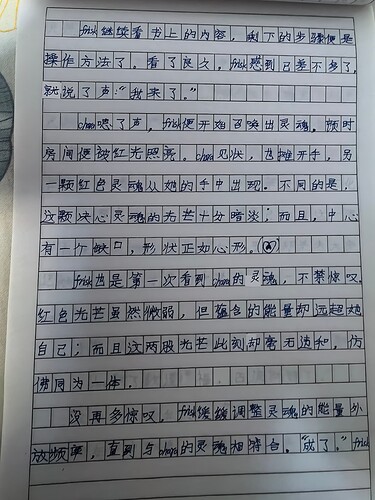 frisk继续看书上的内容，剩下的步骤便是
操作方法了。看了良久，frisk感到已差不多了，
就说了声：“我来了。”
chara嗯了声，frisk便开始召唤出灵魂。顿时
房间便被红光照亮。chara见状，也摊开手，另
一颗红色灵魂从她的手中出现。不同的是，
这颗决心灵魂的光芒十分暗淡；而且，中心
有一个缺口，形状正如心形。
frisk也是第一次看到chara的灵魂，不禁惊叹。
红色光芒虽然微弱，但蕴含的能量却远超越
自己；而且这两股光芒此刻却毫无违和，仿
佛同为一体。
没再多惊叹。frisk缓缓调整灵魂的能量外
放频率，直到与chara的灵魂相符合。“成了。”frisk